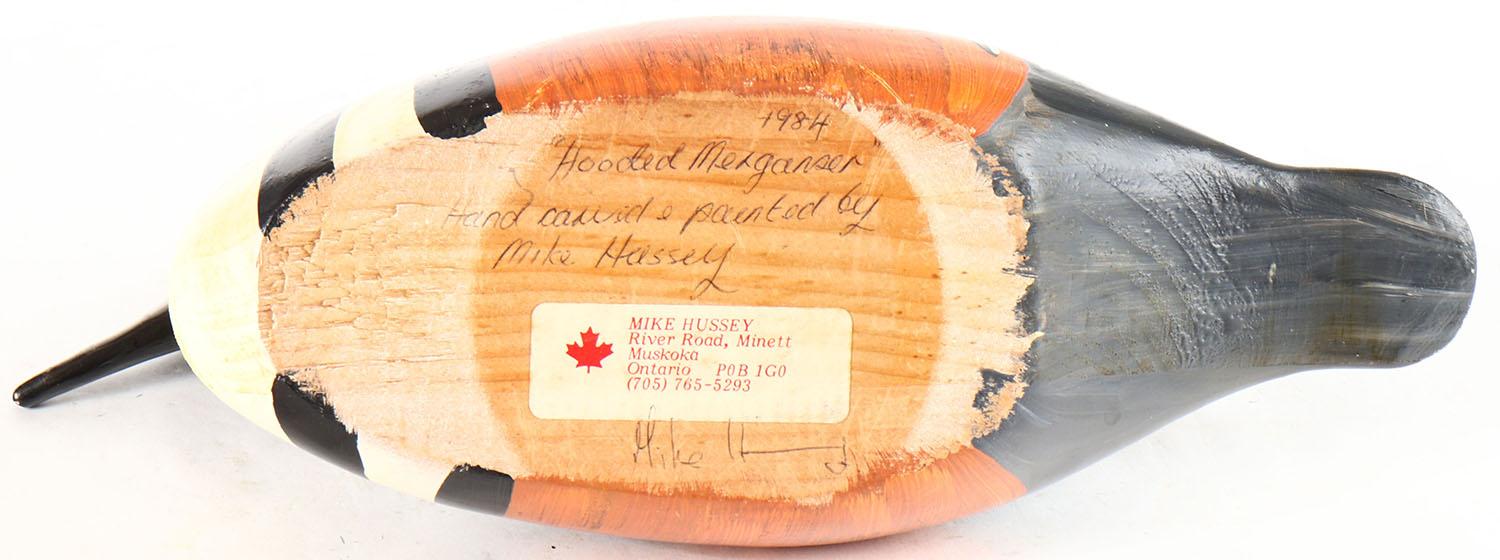 1984
"Hooded Merganser"
Hand carved & painted by
Mike Hussey
MIKE HUSSEY
River Road, Minett
Muskoka
Ontario P0B 1G0
(705) 765-5293
Mike